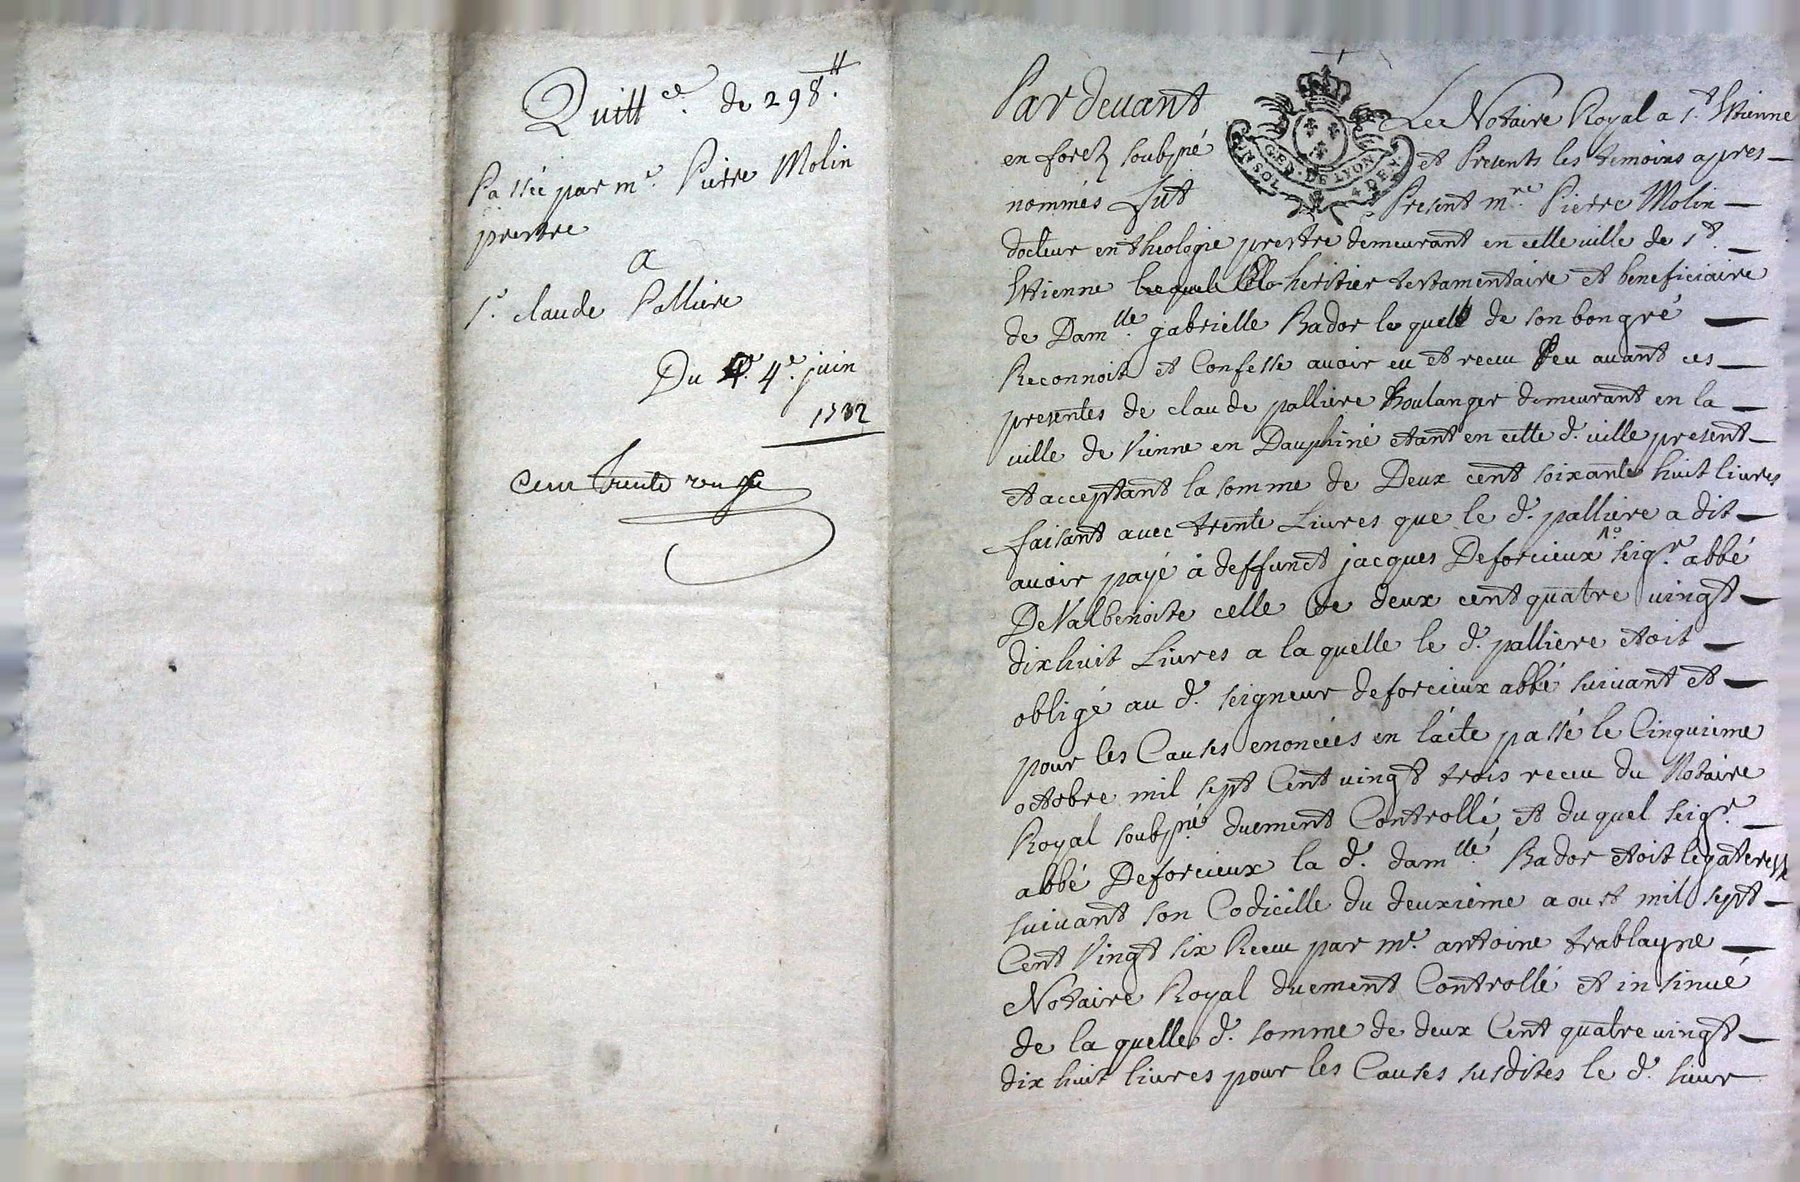 Quitt.ce de 298.tt
Passée par m.e Pierre Molin
prestre
a
s.r claude Palliere
Du 4.e juin
1732
Cent trente
Pardevant Le Notaire Royal a s.t Estienne
en forez soubsné et Presents les temoins apres
nommés fut Present m.re Pierre Molin
docteur en theologie prestre demeurant en cette ville de s.t
Estienne heritier testamentaire et beneficiaire
de Dam.lle gabrielle Bador lequel de son bon gré
Reconnoit et Confesse avoir eu et receu Peu avant ces
presentes de claude palliere Boulanger demeurant en la
ville de Vienne en Dauphiné etant en cette d. ville present
et acceptant la somme de Deux cent soixante huit livres
faisant avec trente Livres que le d. palliere a dit
avoir payé a deffunct jacques Deforcieux seig.r abbé
De Valbenoite celle de deux cent quatre vingt
dix huit Livres a la quelle le d. palliere etoit
obligé au d. seigneur deforcieux abbé suivant et
pour les Causes enoncées en l'acte passé le Cinquieme
octobre mil sept Cent vingt trois receu du Notaire
Royal soubsné duement Controllé et duquel seig.r
abbé Deforcieux la d. dam.lle Bador etoit legateresse
suivant son Codicille du deuxieme aoust mil sept
Cent Vingt six Receu par m.e antoine trablayne
Notaire Royal duement Controllé et insinué
de la quelle d. somme de deux Cent quatre vingt
dix huit livres pour les Causes susdites le d. sieur
GEN. DE LYON